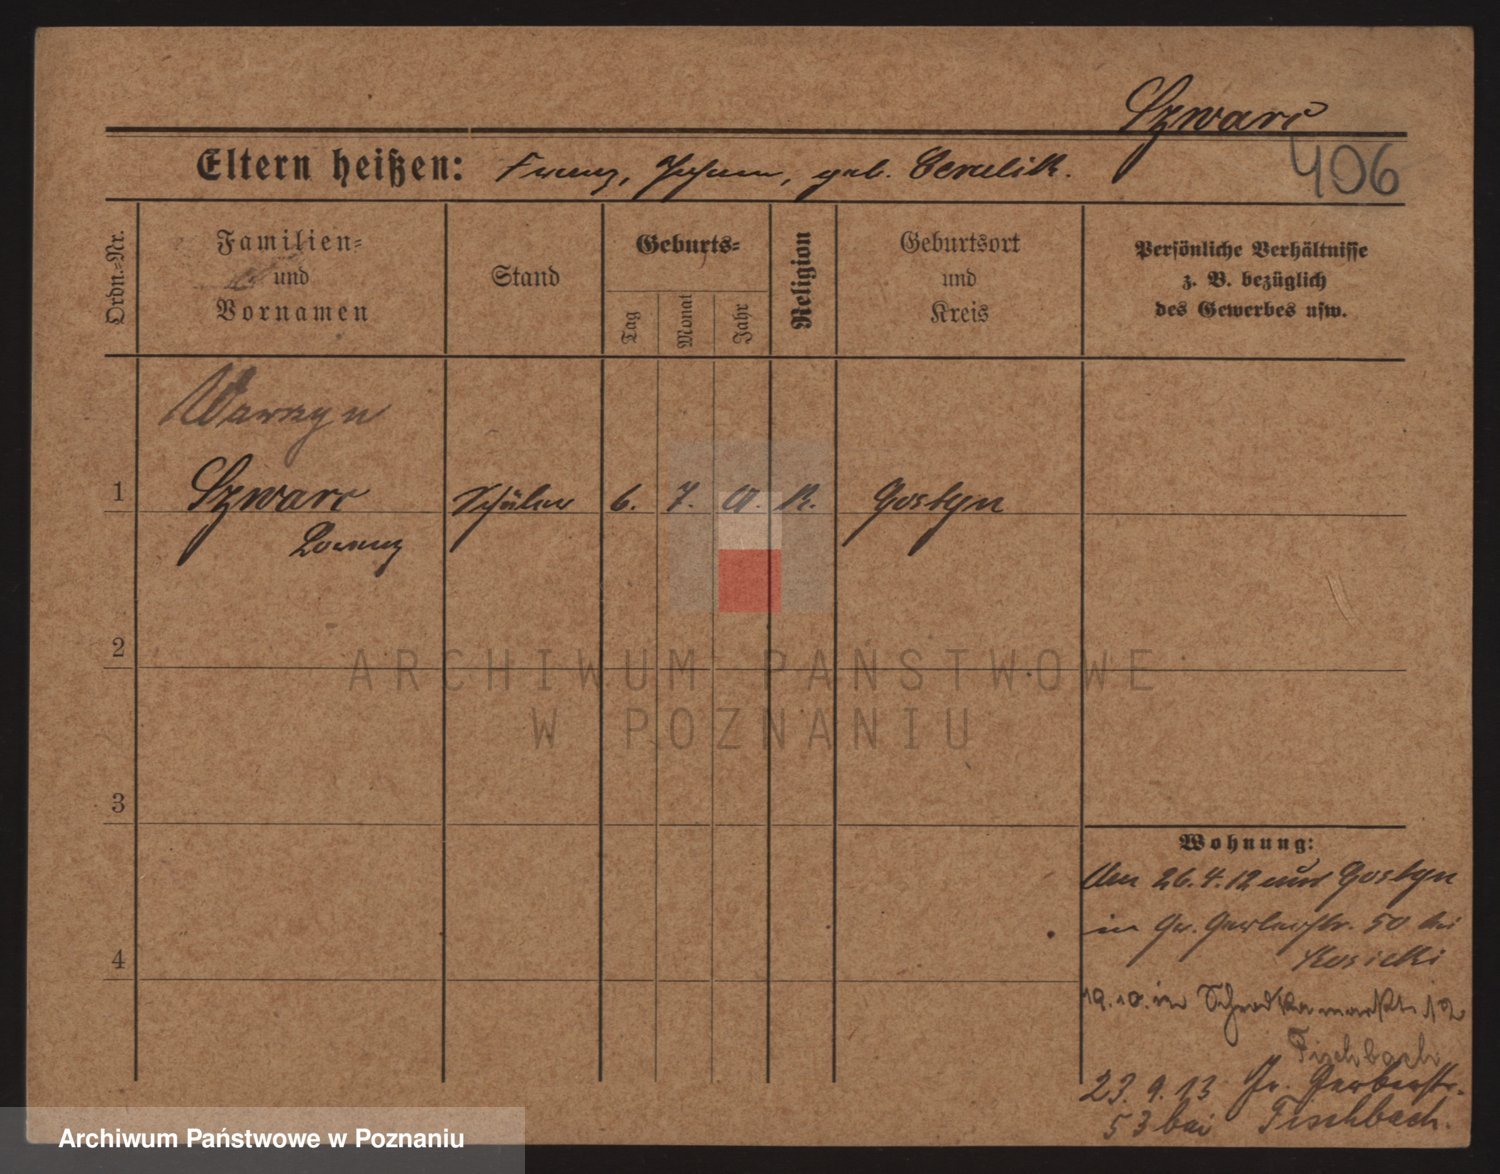 Szwarc
406
Eltern heißen: Franz, Johann, geb. Cerulik.
Ordn.=Nr.
Familien=
und
Vornamen
Stand
Geburts=
Tag
Monat
Jahr
Religion
Geburtsort
und
Kreis
Persönliche Verhältnisse
z. B. bezüglich
des Gewerbes usw.
Wawrzyn
1 Szwarc Schüler 6. 7. K. Gostyn
Lorenz
2
ARCHIWUM PAŃSTWOWE
W POZNANIU
3
Wohnung:
Am 26.4.12 aus Gostyn
in Gr. Gerberstr. 50 bei
Kosicki
19.10. in Schrodkamarkt 12
Fischbach
23.9.13 Gr. Gerberstr.
53 bei Fischbach.
4
Archiwum Państwowe w Poznaniu